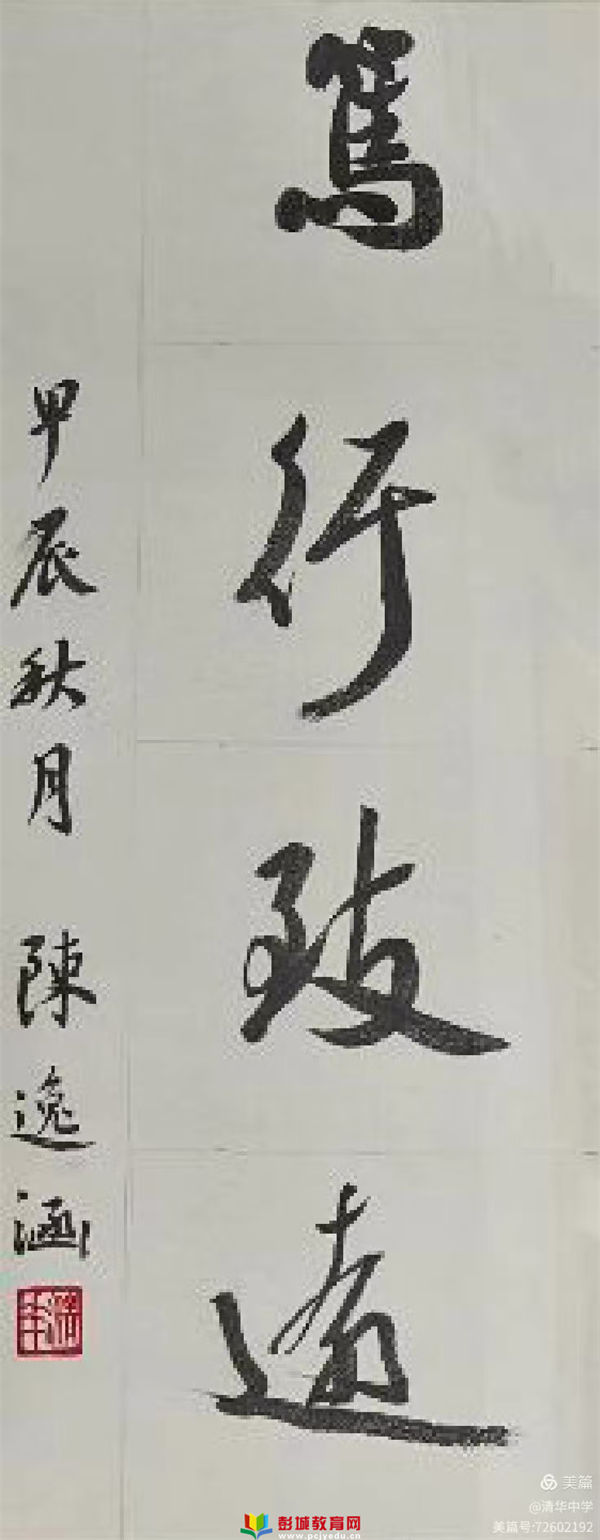 篤行致遠
甲辰秋月 陳逸涵
彭城教育网
www.pcjyedu.cn
美篇
@清华中学
美篇号:72602192